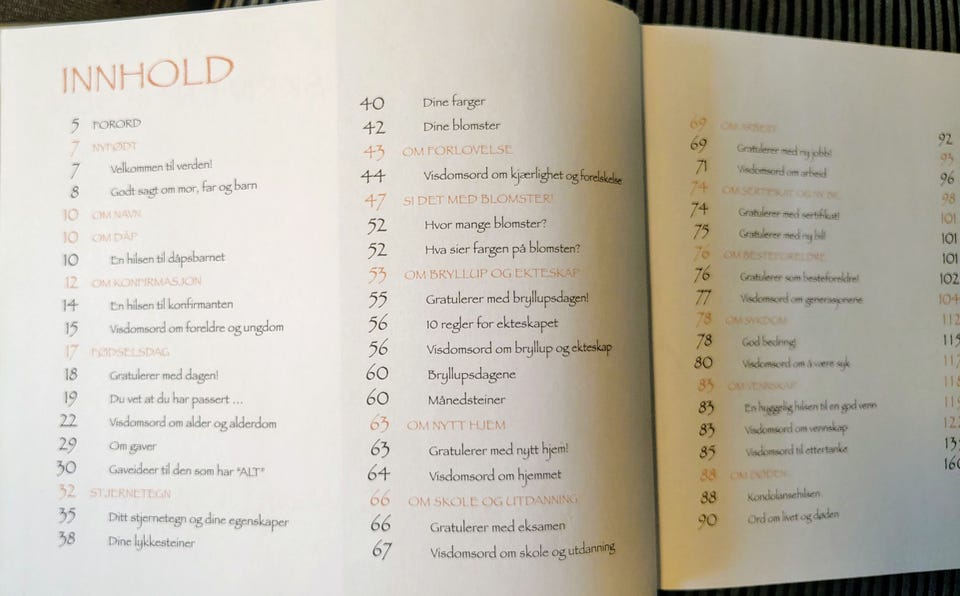 INNHOLD
5 FORORD
7 NYFØDT
7 Velkommen til verden!
8 Godt sagt om mor, far og barn
10 OM NAVN
10 OM DÅP
10 En hilsen til dåpsbarnet
12 OM KONFIRMASJON
14 En hilsen til konfirmanten
15 Visdomsord om foreldre og ungdom
17 FØDSELSDAG
18 Gratulerer med dagen!
19 Du vet at du har passert ...
22 Visdomsord om alder og alderdom
29 Om gaver
30 Gaveideer til den som har "ALT"
32 STJERNETEGN
35 Ditt stjernetegn og dine egenskaper
38 Dine lykkesteiner
40 Dine farger
42 Dine blomster
43 OM FORLOVELSE
44 Visdomsord om kjærlighet og forelskelse
47 SI DET MED BLOMSTER!
52 Hvor mange blomster?
52 Hva sier fargen på blomsten?
53 OM BRYLLUP OG EKTESKAP
55 Gratulerer med bryllupsdagen!
56 10 regler for ekteskapet
56 Visdomsord om bryllup og ekteskap
60 Bryllupsdagene
60 Månedsteiner
63 OM NYTT HJEM
63 Gratulerer med nytt hjem!
64 Visdomsord om hjemmet
66 OM SKOLE OG UTDANNING
66 Gratulerer med eksamen
67 Visdomsord om skole og utdanning
69 OM ARBEID
69 Gratulerer med ny jobb!
71 Visdomsord om arbeid
74 OM SERTIFIKAT OG NY BIL
74 Gratulerer med sertifikat!
75 Gratulerer med ny bil!
76 OM BESTEFORELDRE
76 Gratulerer som besteforeldre!
77 Visdomsord om generasjonene
78 OM SYKDOM
78 God bedring!
80 Visdomsord om å være syk
83 OM VENNSKAP
83 En hyggelig hilsen til en god venn
83 Visdomsord om vennskap
85 Visdomsord til ettertanke
88 OM DØDEN
88 Kondolansehilsen
90 Ord om livet og døden
92
93
96
98
101
101
101
102
104
112